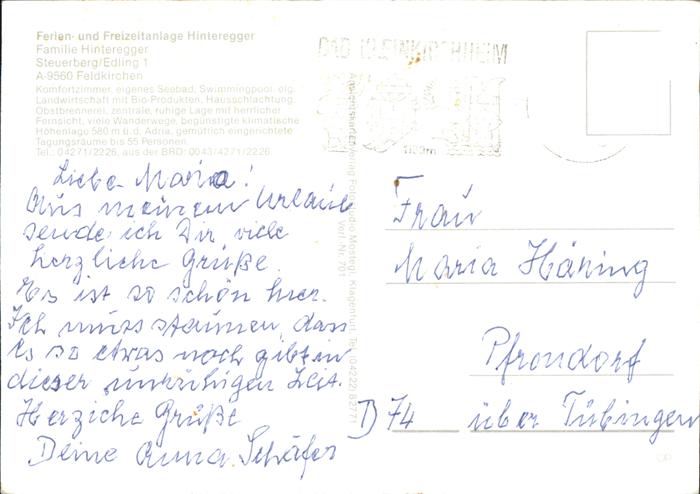 Ferien- und Freizeitanlage Hinteregger
Familie Hinteregger
Steuerberg/Edling 1
A-9560 Feldkirchen
Komfortzimmer, eigenes Seebad, Swimmingpool, eig.
Landwirtschaft mit Bio-Produkten, Hausschlachtung,
Obstbrennerei, zentrale, ruhige Lage mit herrlicher
Fernsicht, viele Wanderwege, begünstigte klimatische
Höhenlage 580 m ü.d. Adria, gemütlich eingerichtete
Tagungsräume bis 55 Personen.
Tel.: 04271/2226, aus der BRD: 0043/4271/2226.
BAD KLEINKIRCHHEIM
1100m
Liebe Maria!
Aus meinem Urlaub
sende ich Dir viele
herzliche Grüße.
Es ist so schön hier.
Ich muss staunen, dass
es so etwas noch gibt in
dieser unruhigen Zeit.
Herziche Grüße
Deine Anna Schäfer
Klagenfurt, Tel. (04222) 8 27 71
Verl.-Nr. 701
Frau
Maria Häring
Pfrondorf
D 74 über Tübingen